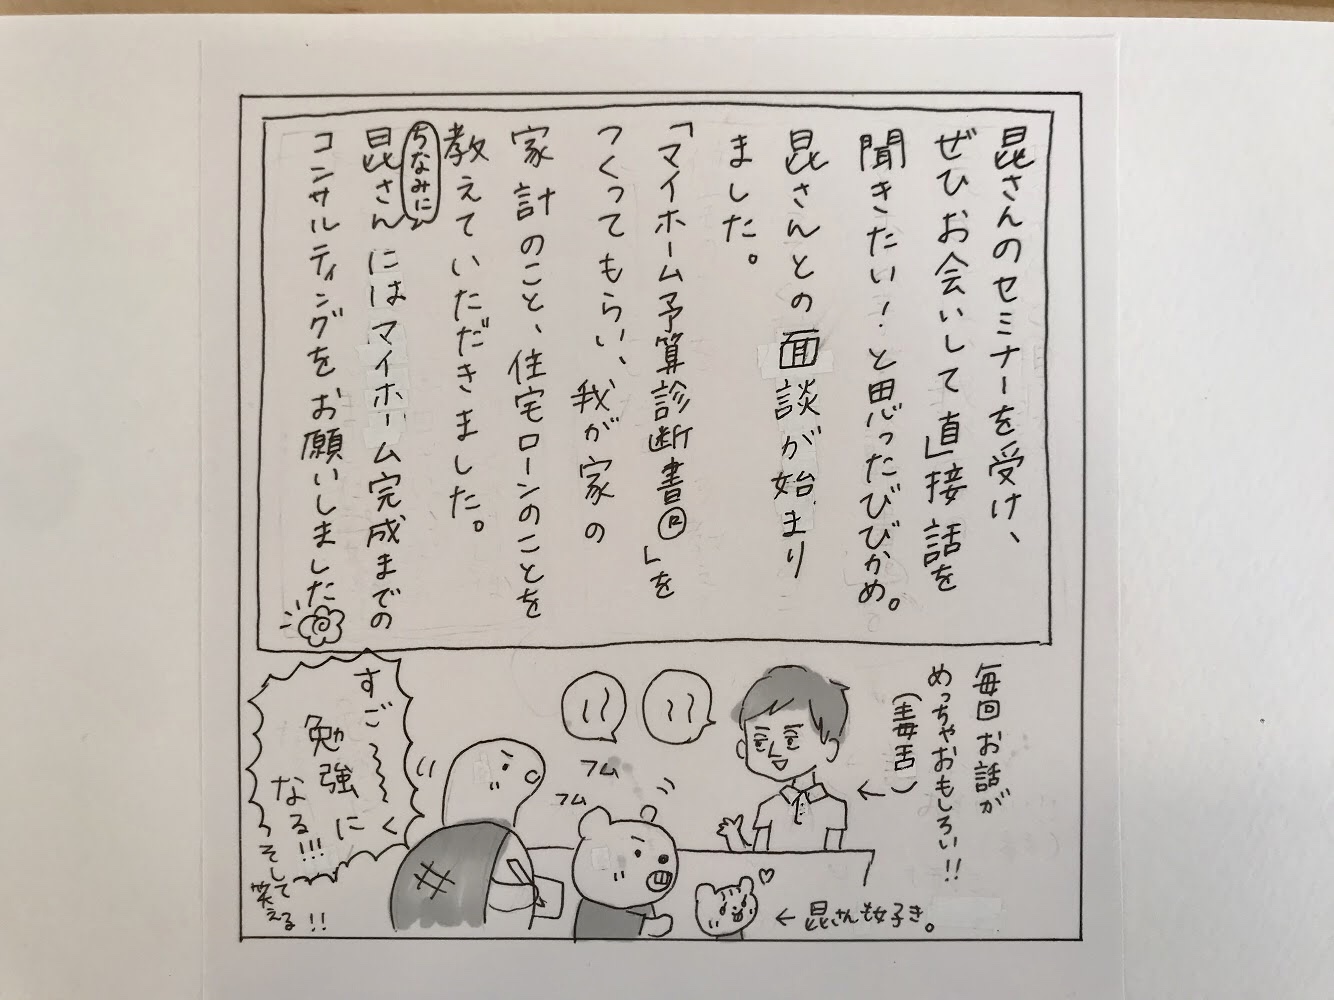 昆さんのセミナーを受け、
ぜひお会いして直接話を
聞きたい！と思ったびびかめ。
昆さんとの面談が始まり
ました。
「マイホーム予算診断書®」を
つくってもらい、我が家の
家計のこと、住宅ローンのことを
教えていただきました。
ちなみに
昆さんにはマイホーム完成までの
コンサルティングをお願いしました
毎回お話が
めっちゃおもしろい!!
(毒舌)
フム
フム
すご〜く
勉強に
なる!!!
そして
笑える!!
← 昆さん大好き。